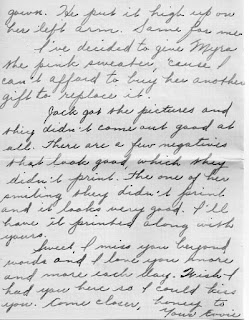 gown. He put it high up on
her left arm. Same for me.
I've decided to give Myra
the pink sweater, 'cause I
can't afford to buy her another
gift to replace it.
Jack got the pictures and
they didn't come out good at
all. There are a few negatives
that look good which they
didn't print. The one of her
smiling they didn't print
and it looks very good. I'll
have it printed along with
yours.
Sweet, I miss you beyond
words and I love you more
and more each day. Wish I
had you here so I could kiss
you. Come closer, honey to
Your